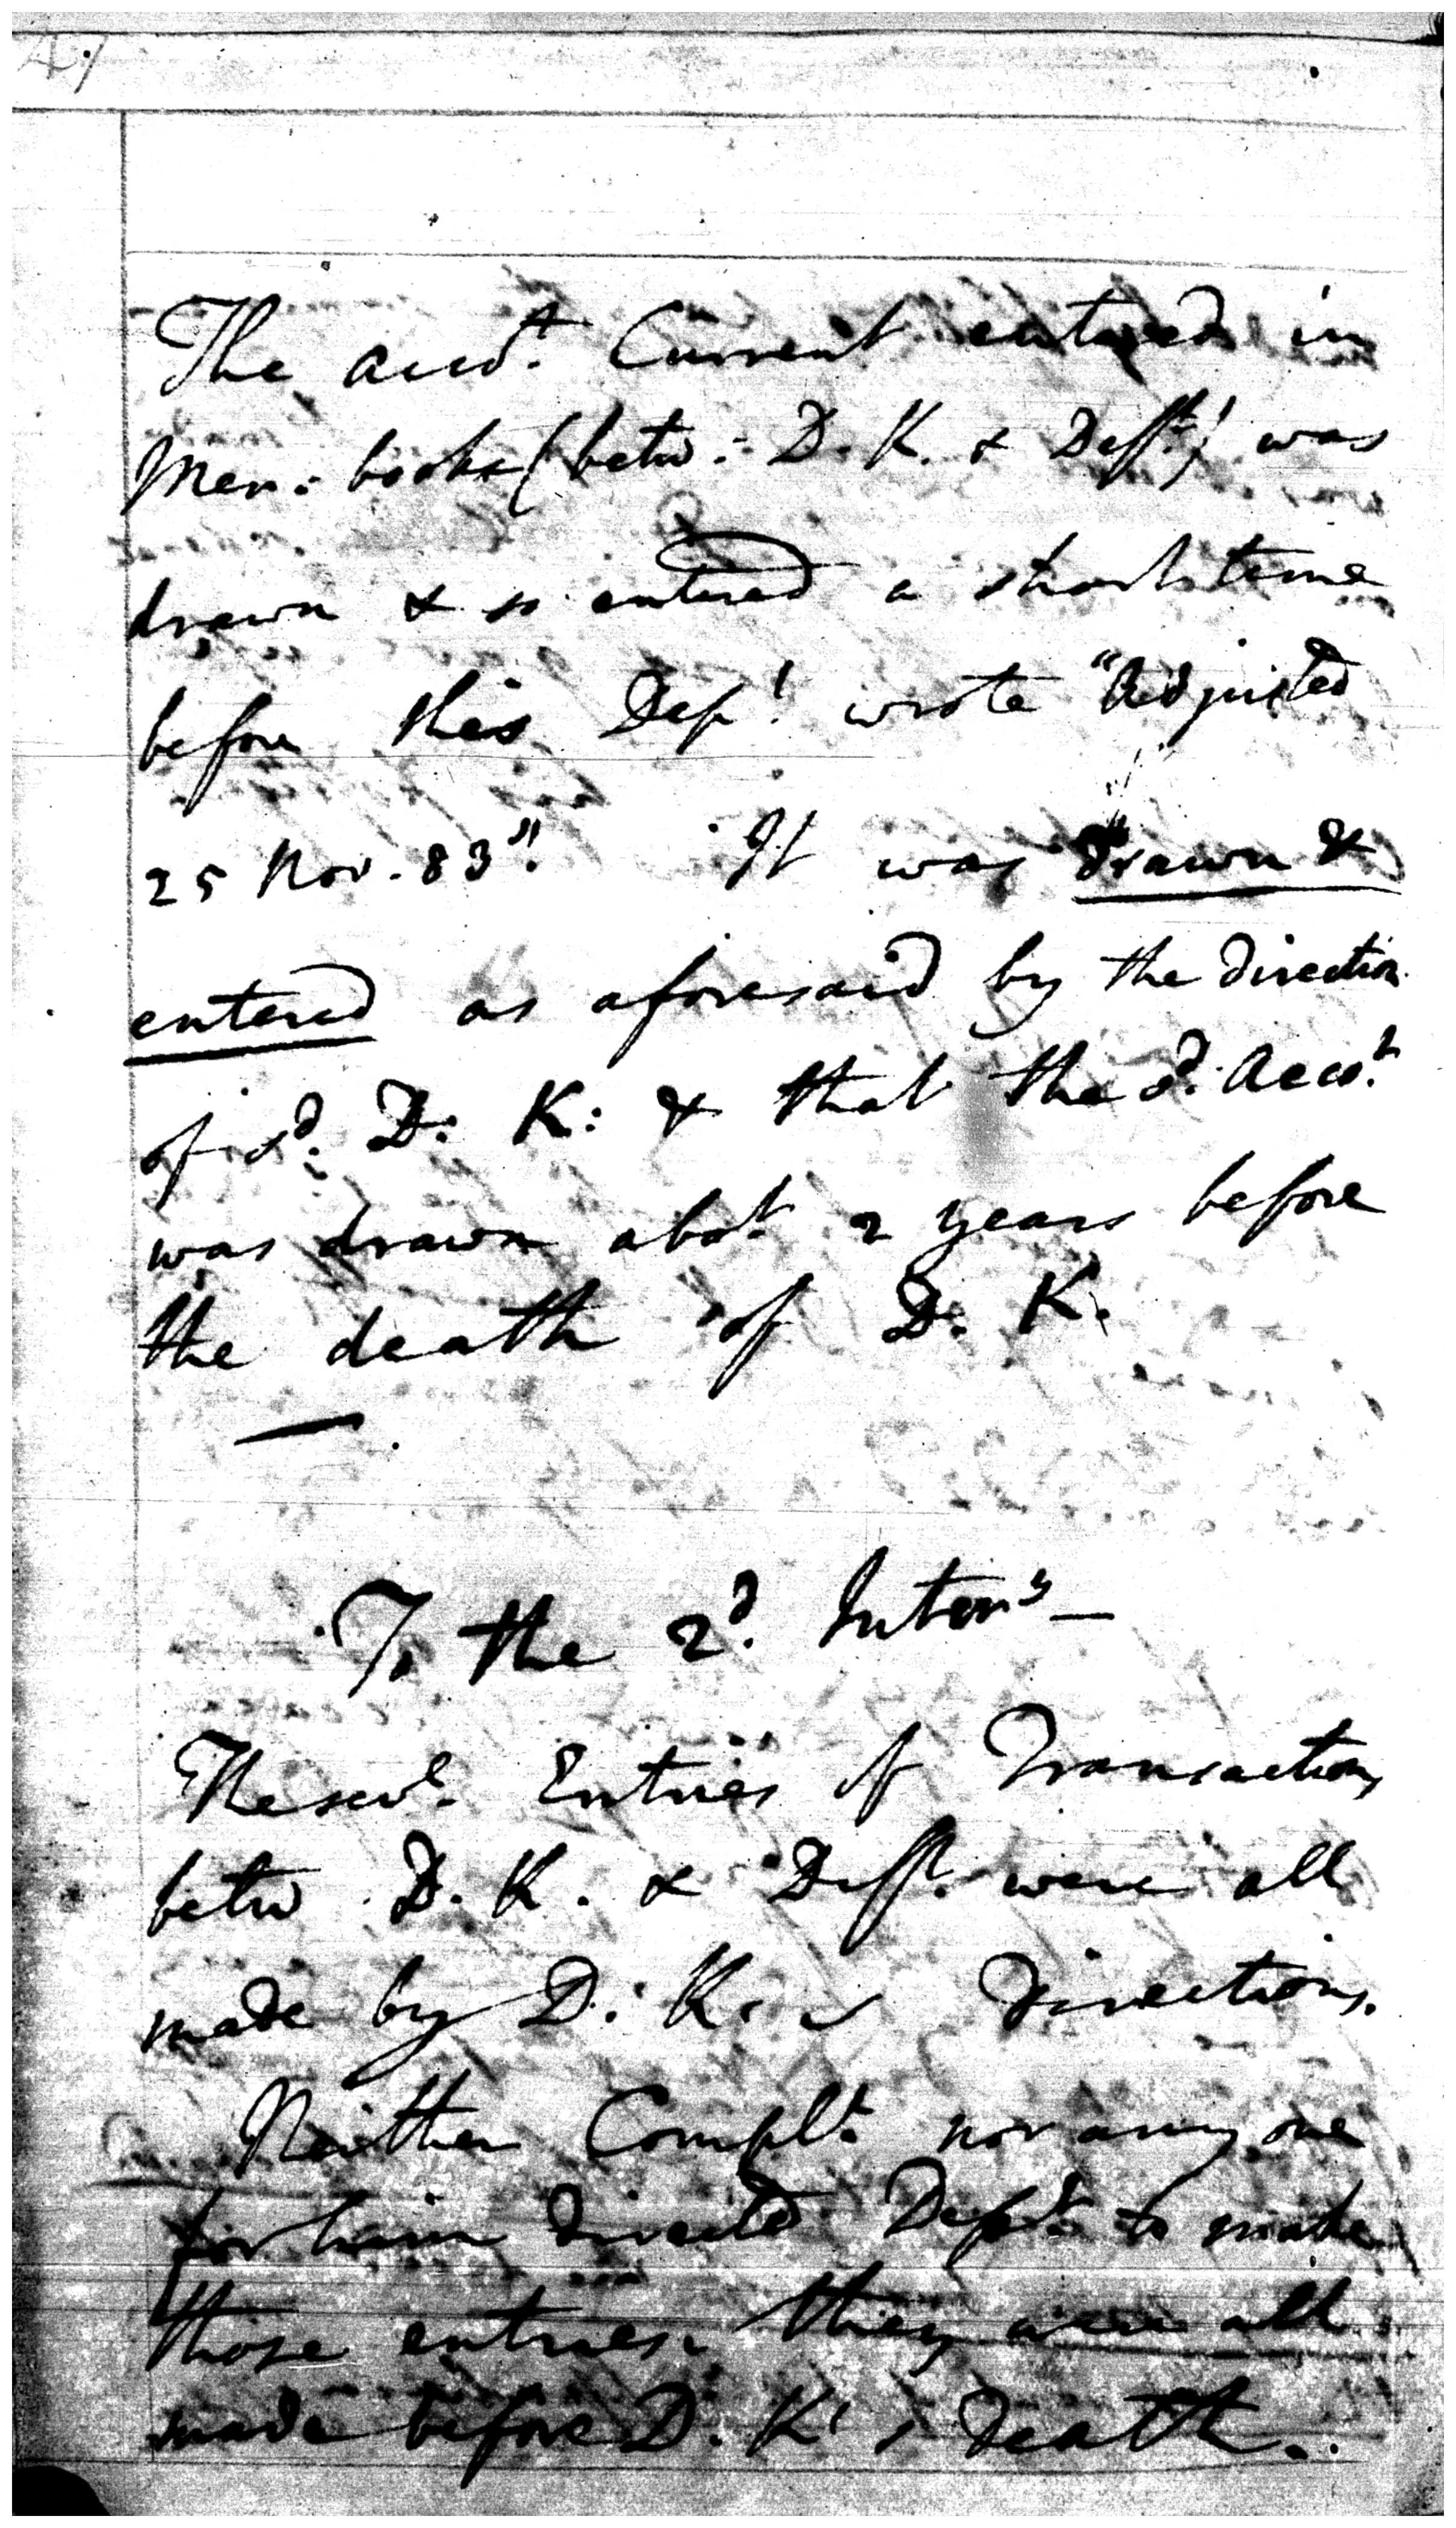 47
The acco.t Current entered in
Mer: books (betw: D. K. & Deft.) was
drawn & so entered a short time
before this Dep.t wrote "Adjusted
25 Nov. 83". It was drawn &
entered as aforesaid by the direction
of s.d D: K: & that the s.d Acco.t
was drawn abo.t 2 years before
the death of D. K.
—
To the 2.d Inter.y —
The sev.l Entries of Transactions
betw D. K. & Deft. were all
made by D: K: s directions.
Neither Compl.t nor any one
for him directed Dep.t to make
those entries. they were all
made before D. K's death.